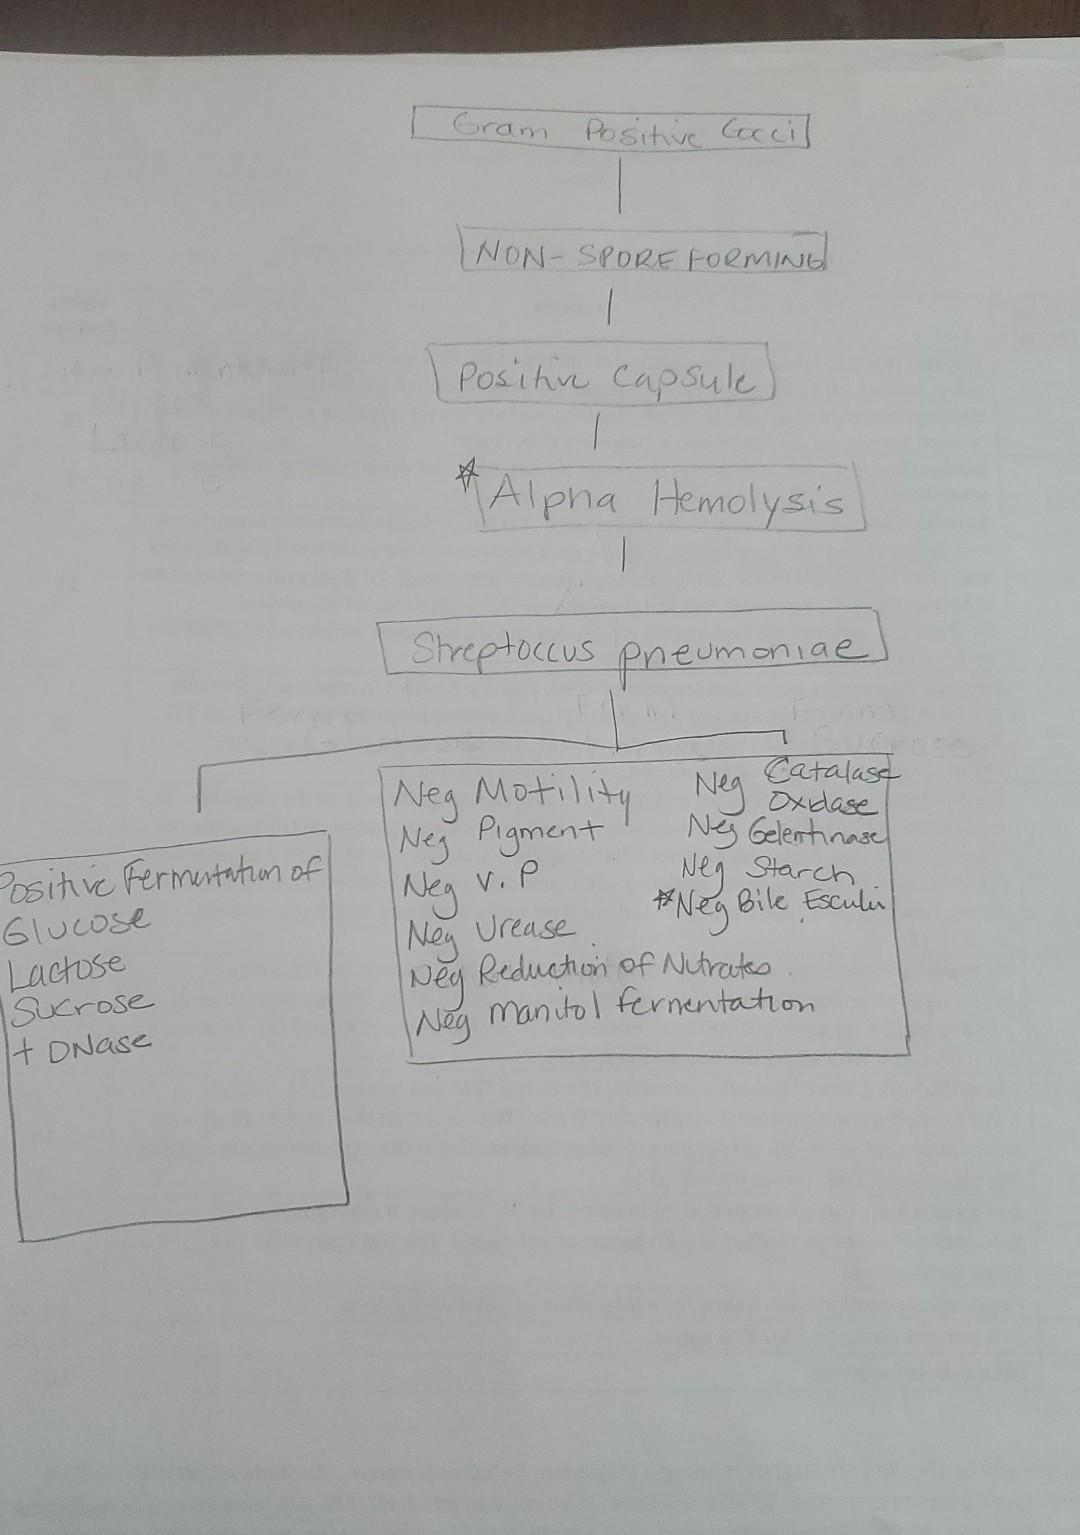 Gram Positive Cocci
NON-SPORE FORMING
Positive Capsule
☆ Alpha Hemolysis
Streptoccus pneumoniae
Positive Fermentation of
Glucose
Lactose
Sucrose
+ DNase
Neg Motility
Neg Pigment
Neg V.P
Neg Urease
Neg Reduction of Nitrates
Neg manitol fermentation
Neg Catalase
Oxidase
Neg Gelentinase
Neg Starch
☆Neg Bile Esculin